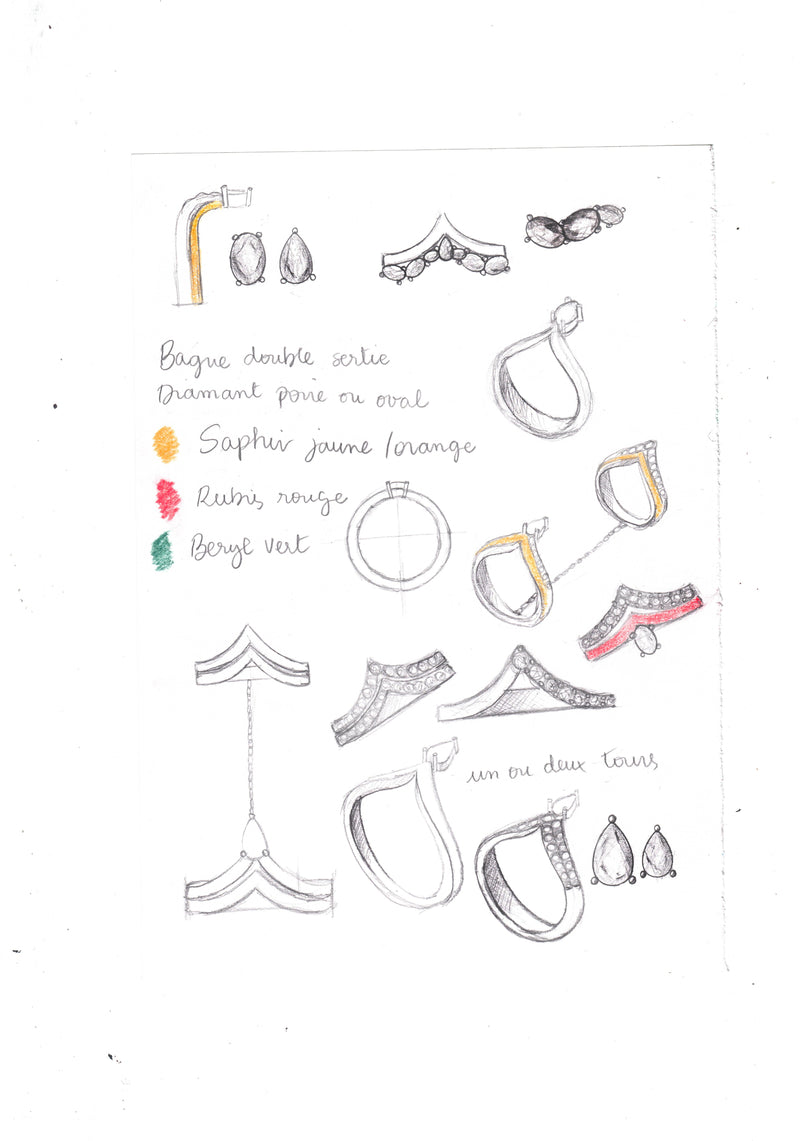 Bague double sertie
Diamant poire ou oval
Saphir jaune /orange
Rubis rouge
Beryl vert
un ou deux tours